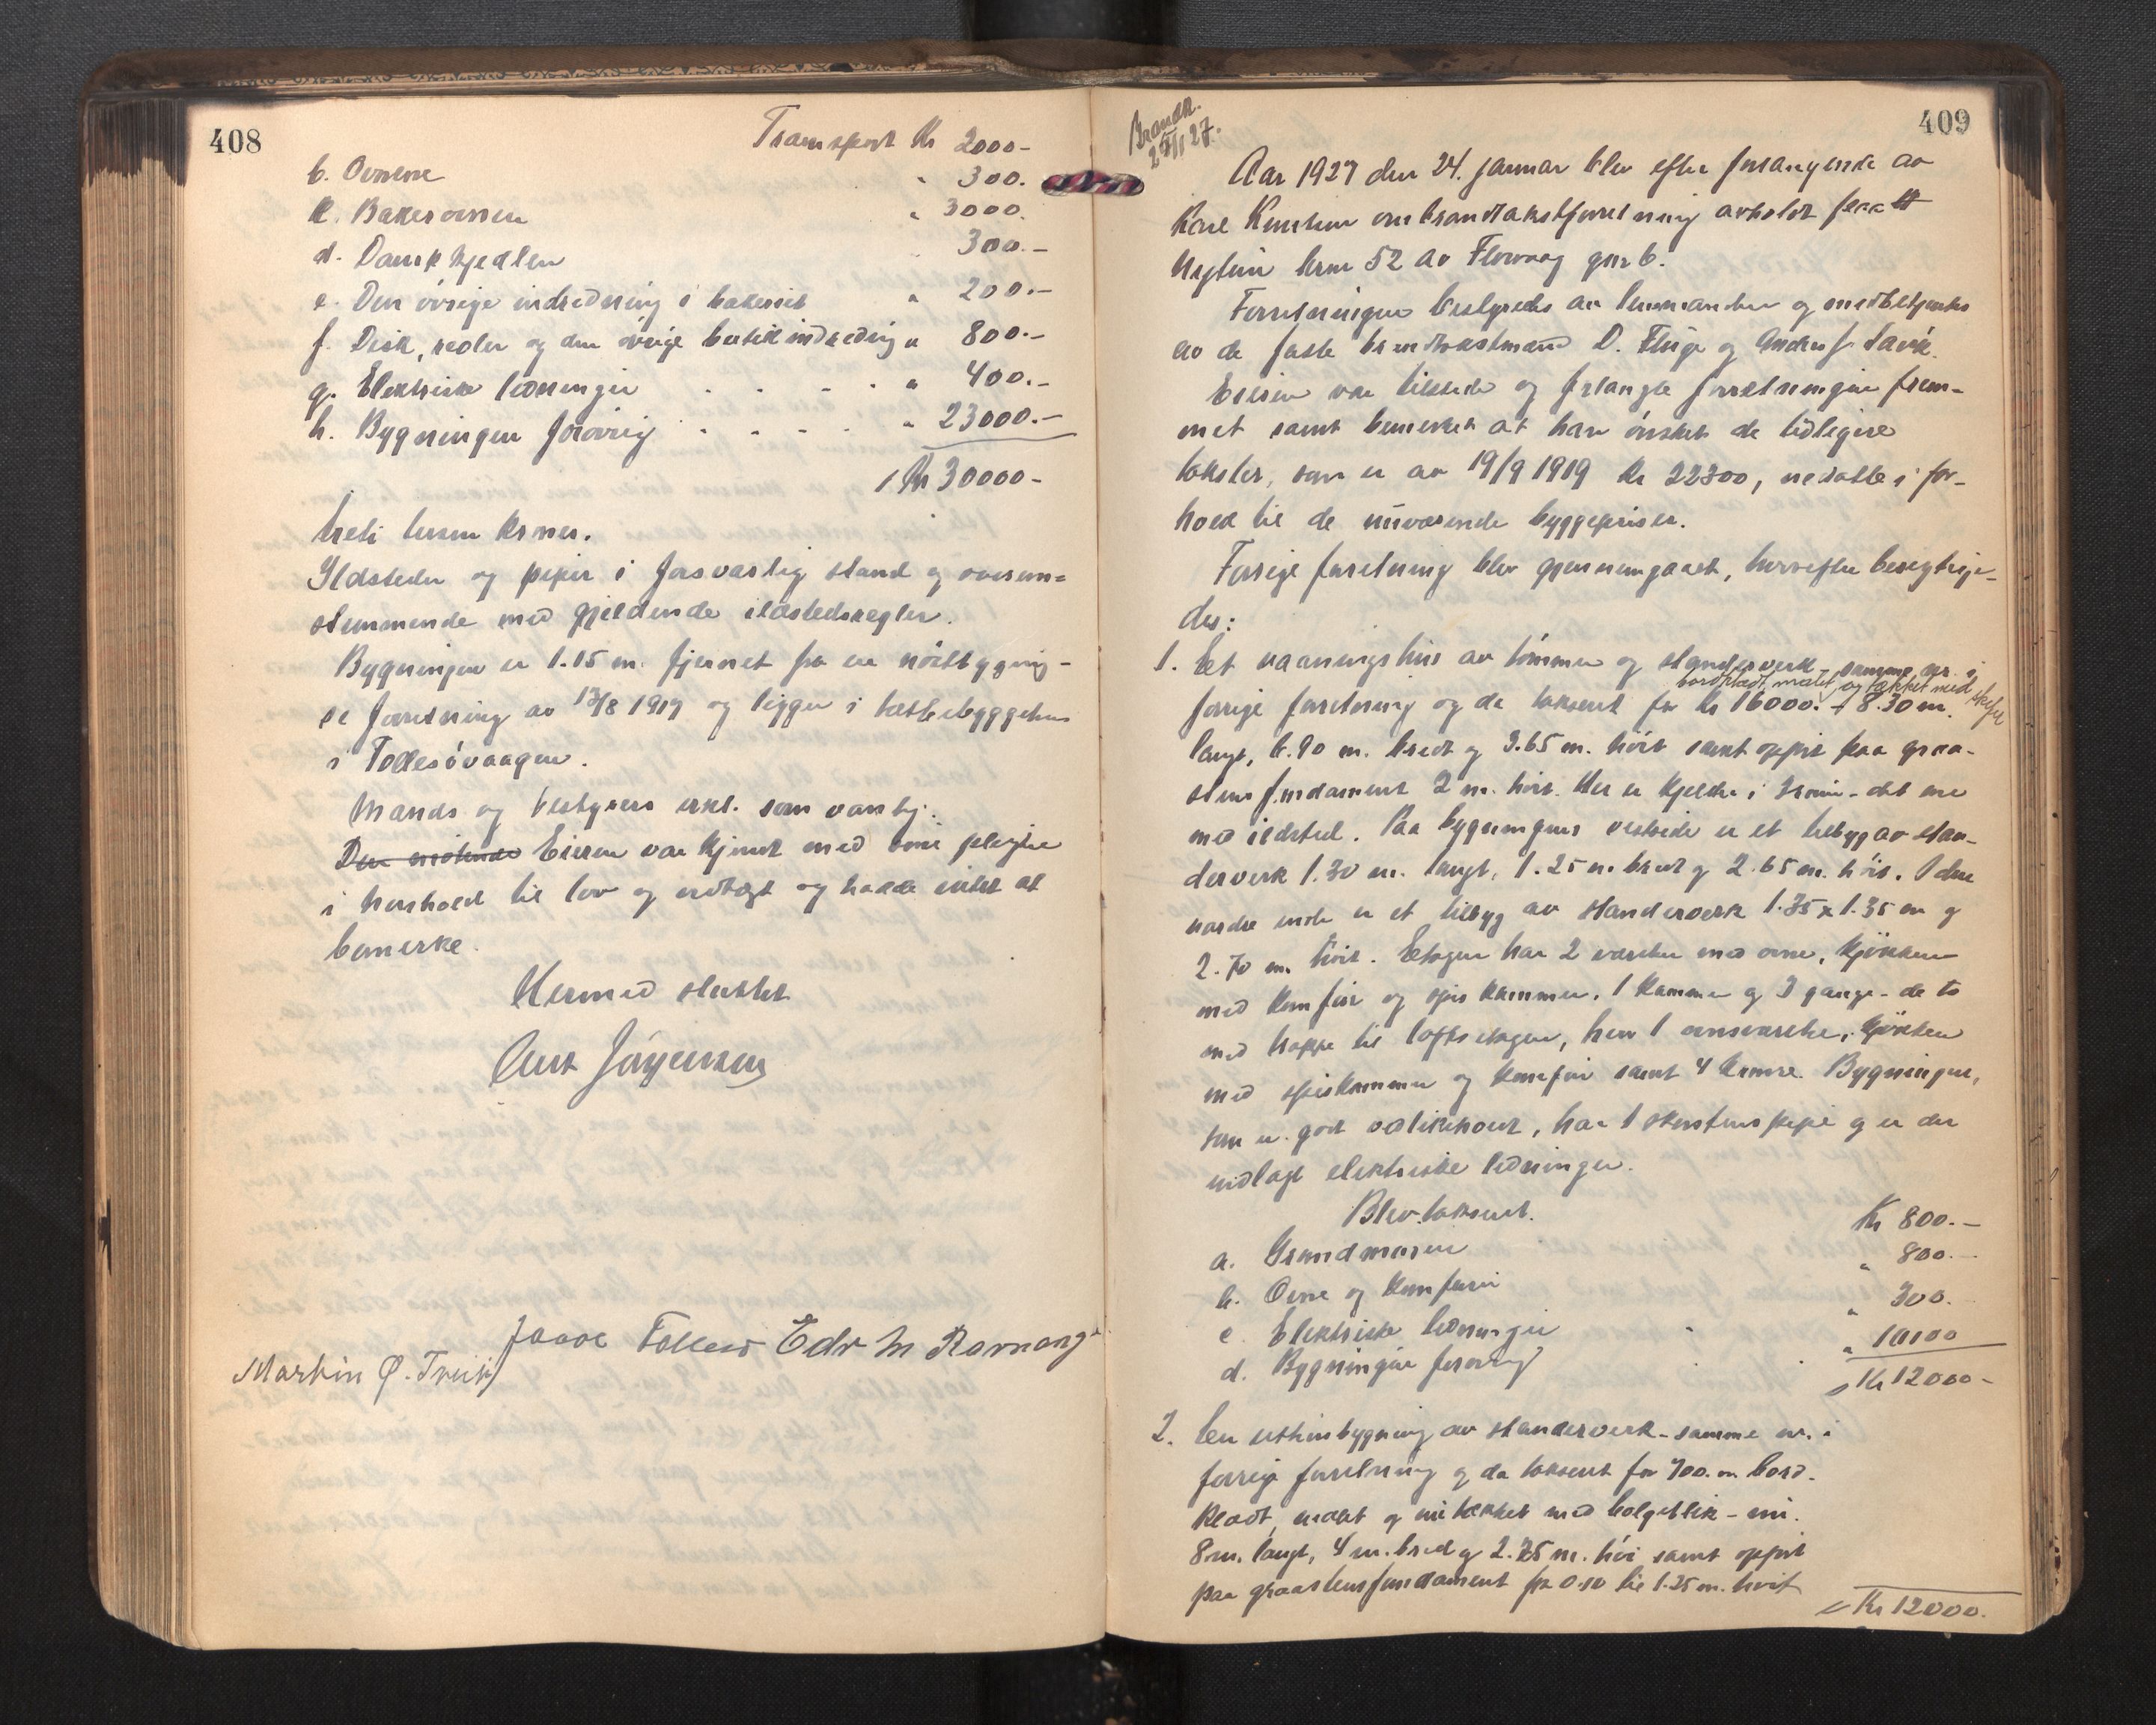 408
Transport Kr 2000-
b. Ovnene " 300.
c. Bakerovnen " 3000.
d. Dampkjedlen 300.-
e. Den øvrige indredning i bakeriet " 200.-
f. Disk, reoler og den øvrige butikindredning " 800.-
g. Elektriske ledninger . . - . " 400.-
h. Bygningen forøvrig . - - . " 23000.-
Kr 30000-
treti tusen kroner.
Ildsteder og piper i forsvarlig stand og overens=
stemmende med gjeldende ildstedsregler.
Bygningen er 1.15 m. fjernet fra en nöstbygning -
se forretning av 13/8 1919 og ligger i tættebyggelsen
i Follesövaagen.
Mænds og bestyrers erkl. som vanlig.
Den mötende Eieren var kjent med sine pligter
i henhold til lov og vedtægt og hadde intet at
bemerke.
Hermed sluttet
Jørgensen
Martin Ø. Træit Follesø Edv M
409
Brandk.
27/1 27.
Aar 1927 den 24. januar blev efter forlangende av
Karl Knutsen om brandtakstforretning avholdt paa
Nyheim brnr 52 av Florvaag gnr 6.
Forretningen bestyredes av lensmanden og medbetjentes
av de faste brandtakstmænd D. Fluge og Anders J.
Eieren var tilstede og forlangte forretningen frem-
met samt bemerket at han ønsket de tidligere
takster, som er av 19/9 1919 kr 22300, nedsatte i for-
hold til de nuværende byggepriser.
Forrige forretning blev gjennemgaaet, hvorefter besigtige-
des:
1. Et vaaningshus av tömmer og standerverk - samme nr. i
bordklædt, malet og tækket med skifer
forrige forretning og da taksert for kr 16000.- 8.30 m.
langt, 6.90 m. bredt og 3.65 m. høit samt opført paa graa-
stens fundament 2 m. høit. Her er kjelder i 3 rum - det ene
med ildsted. Paa bygningens vestside er et tilbyg av stan-
derverk 1.30 m. langt, 1.25 m. bredt og 2.65 m. høit. I den
nordre ende er et tilbyg av standerverk 1.35 x 1.35 m og
2.70 m. høit. Etagen har 2 værelser med ovne, kjökken
med komfur og spiskammer. 1 kammer og 3 gange - de to
med trappe til loftsetagen, hvor 1 ovnsværelse, kjökken
med spiskammer og komfur samt 4 kamre. Bygningen,
som er godt vedlikeholdt, har 1 skorstenspipe og er der
indlagt elektriske ledninger.
Blev taksert.
a. Grundmuren Kr 800.-
b. Ovne og komfurer " 800.-
c. Elektriske ledninger " 300.
d. Bygningen forøvrig " 10100
Kr 12000-
2. En uthusbygning av standerverk - samme nr. i
forrige forretning og da taksert for 700. - bord-
klædt, malt og nu tækket med bølgeblik -
8 m. langt, 4 m. bred og 2.75 m. höi samt opført
paa graastensfundament fra 0.10 til 1.25 m. høit
Kr 12000.